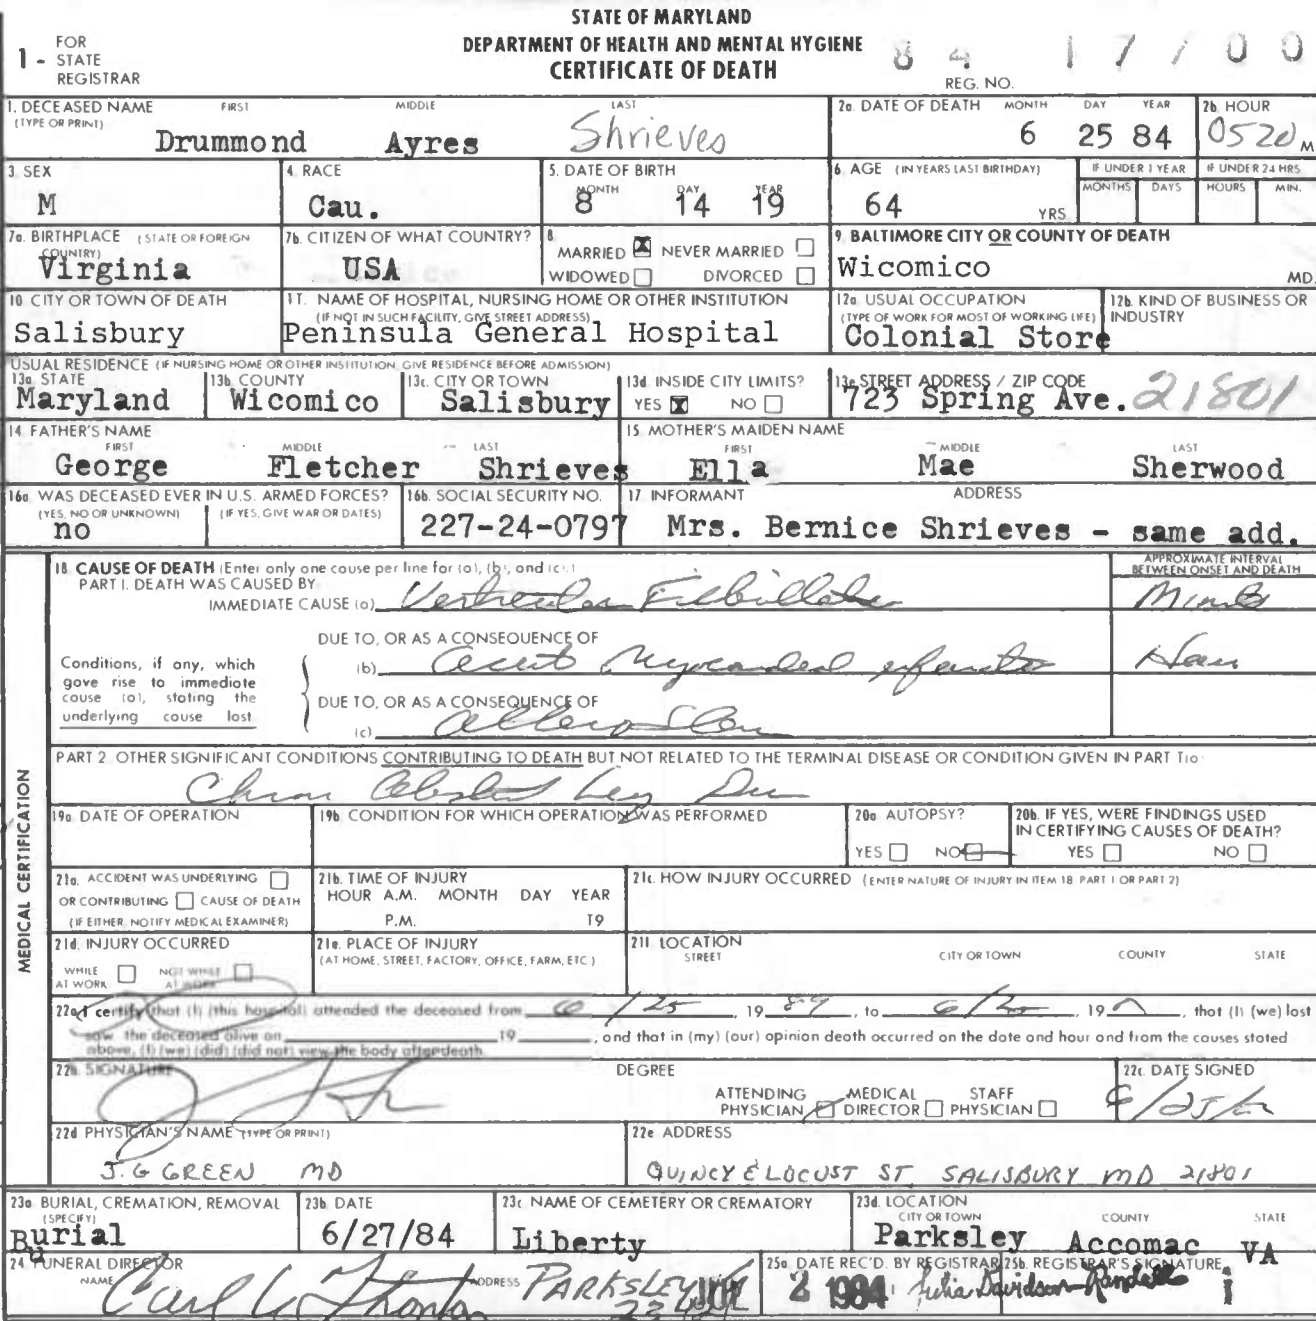 STATE OF MARYLAND
DEPARTMENT OF HEALTH AND MENTAL HYGIENE
CERTIFICATE OF DEATH
1 - FOR STATE REGISTRAR
REG. NO.
1. DECEASED NAME (TYPE OR PRINT) FIRST MIDDLE LAST
Drummond Ayres Shrieves
2a. DATE OF DEATH MONTH DAY YEAR
6 25 84
2b. HOUR
0520 M
3. SEX
M
4. RACE
Cau.
5. DATE OF BIRTH MONTH DAY YEAR
8 14 19
6. AGE (IN YEARS LAST BIRTHDAY)
64 YRS.
IF UNDER 1 YEAR MONTHS DAYS
IF UNDER 24 HRS. HOURS MIN.
7a. BIRTHPLACE (STATE OR FOREIGN COUNTRY)
Virginia
7b. CITIZEN OF WHAT COUNTRY?
USA
8. MARRIED X NEVER MARRIED
WIDOWED DIVORCED
9. BALTIMORE CITY OR COUNTY OF DEATH
Wicomico MD.
10. CITY OR TOWN OF DEATH
Salisbury
11. NAME OF HOSPITAL, NURSING HOME OR OTHER INSTITUTION
(IF NOT IN SUCH FACILITY, GIVE STREET ADDRESS)
Peninsula General Hospital
12a. USUAL OCCUPATION
(TYPE OF WORK FOR MOST OF WORKING LIFE)
Colonial Store
12b. KIND OF BUSINESS OR INDUSTRY
USUAL RESIDENCE (IF NURSING HOME OR OTHER INSTITUTION GIVE RESIDENCE BEFORE ADMISSION)
13a. STATE
Maryland
13b. COUNTY
Wicomico
13c. CITY OR TOWN
Salisbury
13d. INSIDE CITY LIMITS?
YES X NO
13e. STREET ADDRESS / ZIP CODE
723 Spring Ave. 21801
14. FATHER'S NAME FIRST MIDDLE LAST
George Fletcher Shrieves
15. MOTHER'S MAIDEN NAME FIRST MIDDLE LAST
Ella Mae Sherwood
16a. WAS DECEASED EVER IN U.S. ARMED FORCES?
(YES, NO OR UNKNOWN) (IF YES, GIVE WAR OR DATES)
no
16b. SOCIAL SECURITY NO.
227-24-0797
17. INFORMANT ADDRESS
Mrs. Bernice Shrieves - same add.
MEDICAL CERTIFICATION
18. CAUSE OF DEATH (Enter only one cause per line for (a), (b), and (c).)
APPROXIMATE INTERVAL BETWEEN ONSET AND DEATH
PART I. DEATH WAS CAUSED BY:
IMMEDIATE CAUSE (a) Ventricular Fibrillation
DUE TO, OR AS A CONSEQUENCE OF
(b) Acute Myocardial infarction
Conditions, if any, which gave rise to immediate cause (a), stating the underlying cause last
DUE TO, OR AS A CONSEQUENCE OF
(c)
PART 2 OTHER SIGNIFICANT CONDITIONS CONTRIBUTING TO DEATH BUT NOT RELATED TO THE TERMINAL DISEASE OR CONDITION GIVEN IN PART 1(a)
19a. DATE OF OPERATION
19b. CONDITION FOR WHICH OPERATION WAS PERFORMED
20a. AUTOPSY?
YES NO
20b. IF YES, WERE FINDINGS USED IN CERTIFYING CAUSES OF DEATH?
YES NO
21a. ACCIDENT WAS UNDERLYING
OR CONTRIBUTING CAUSE OF DEATH
(IF EITHER, NOTIFY MEDICAL EXAMINER)
21b. TIME OF INJURY
HOUR A.M. MONTH DAY YEAR
P.M. 19
21c. HOW INJURY OCCURRED (ENTER NATURE OF INJURY IN ITEM 18 PART 1 OR PART 2)
21d. INJURY OCCURRED
WHILE AT WORK NOT WHILE AT WORK
21e. PLACE OF INJURY
(AT HOME, STREET, FACTORY, OFFICE, FARM, ETC.)
21f. LOCATION
STREET CITY OR TOWN COUNTY STATE
22a. I certify that (I) (this hospital) attended the deceased from 6/25, 19 84, to 6/25, 19, that (I) (we) last
saw the deceased alive on 19, and that in (my) (our) opinion death occurred on the date and hour and from the causes stated
above, (I) (we) (did) (did not) view the body after death.
22b. SIGNATURE DEGREE
ATTENDING PHYSICIAN MEDICAL DIRECTOR STAFF PHYSICIAN
22c. DATE SIGNED
22d. PHYSICIAN'S NAME (TYPE OR PRINT)
J. G GREEN MD
22e. ADDRESS
QUINCY & LOCUST ST. SALISBURY MD 21801
23a. BURIAL, CREMATION, REMOVAL (SPECIFY)
Burial
23b. DATE
6/27/84
23c. NAME OF CEMETERY OR CREMATORY
Liberty
23d. LOCATION CITY OR TOWN COUNTY STATE
Parksley Accomac VA
24. FUNERAL DIRECTOR
NAME ADDRESS PARKSLEY
25a. DATE REC'D. BY REGISTRAR
2 1984
25b. REGISTRAR'S SIGNATURE
Julia Davidson-Randall